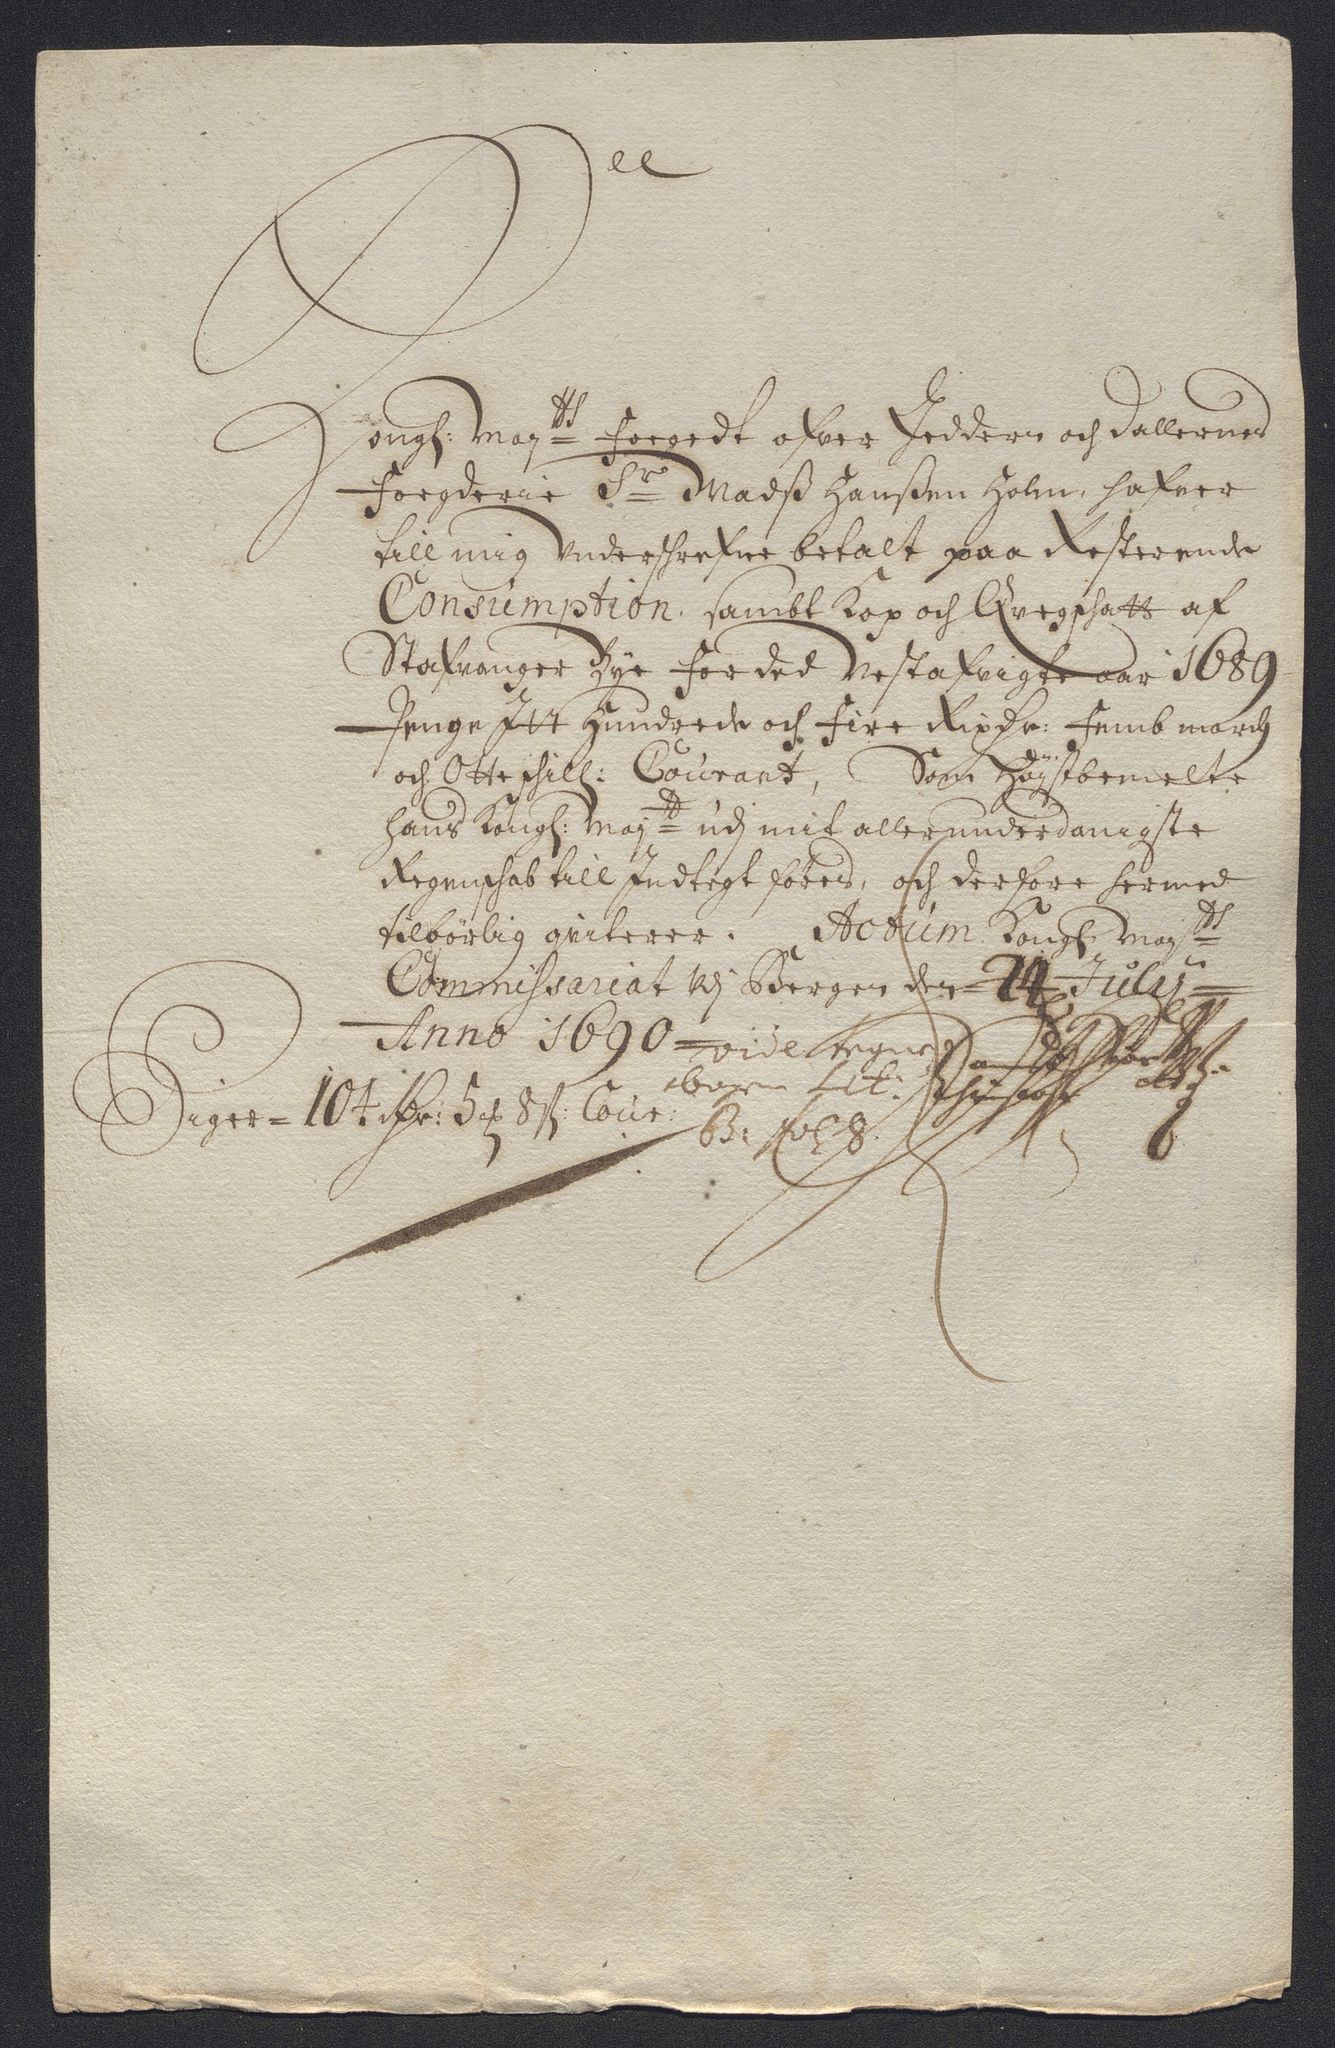 Kongl: Maytts Foegedt ofver Jedderen och Dallernes
Foegderie Sr Madß Hanßen Holm, hafver
till mig underschrefne betalt paa Resterende
Consumption, sambt Kop och Qvegschatt af
Stafvanger Bye for ded Nestafvigte aar 1689
Penge Itt Hundrede och Fire Rixdr: Femb march
och Otte schill: Courant, Som Høystbemelte
hans Kongl: Maytt udj mit allerunderdanigste
Regenschab till Indtegt føres, och derfore hermed
tilbørlig qviterer. Actum Kongl Maytts
Commissariat Udj Bergen den 24 July
Anno 1690 vide
Siger 104 Rdr: 5 mk 8 s: Cour: Lit:
B: fol 8.